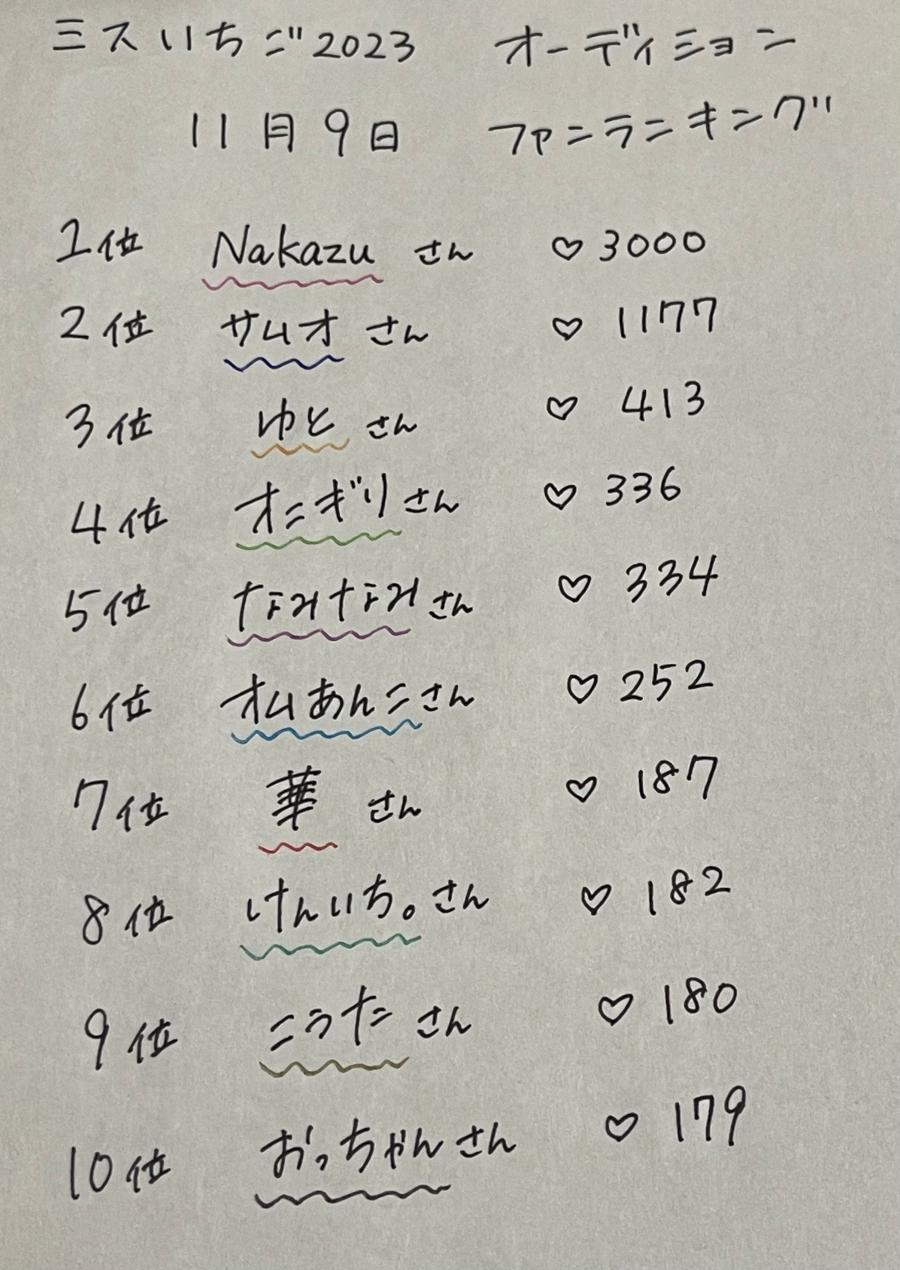 ミスいちご2023 オーディション
11月9日 ファンランキング
1位 Nakazu さん ♡3000
2位 サムオ さん ♡ 1177
3位 ゆと さん ♡ 413
4位 オニギリさん ♡ 336
5位 なみなみさん ♡ 334
6位 オムあんこさん ♡ 252
7位 華 さん ♡ 187
8位 けんいち。さん ♡ 182
9位 こうた さん ♡ 180
10位 おっちゃんさん ♡ 179